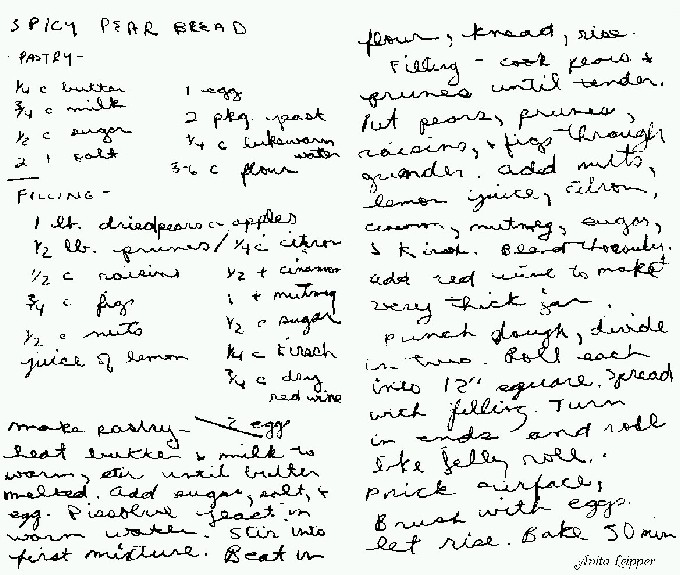 SPICY PEAR BREAD
PASTRY-
1/4 c butter
3/4 c milk
1/2 c sugar
2 t salt
1 egg
2 pkg yeast
1/4 c lukewarm
water
3-6 c flour
FILLING-
1 lb. dried pears or apples
1/2 lb. prunes / 1/4 c citron
1/2 c raisins
3/4 c figs
1/2 c nuts
juice of lemon
1/2 t cinnamon
1 t nutmeg
1/2 c sugar
1/4 c Kirsch
3/4 c dry
red wine
make pastry- 2 egg
heat butter & milk to
warm, stir until butter
melted. Add sugar, salt, &
egg. Dissolve yeast in
warm water. Stir into
first mixture. Beat in
flour, knead, rise.
Filling - cook pears &
prunes until tender.
Put pears, prunes,
raisins, & figs through
grinder. Add nuts,
lemon juice, citron,
cinnamon, nutmeg, sugar,
& Kirsch. Blend thoroughly.
add red wine to make
very thick jam.
Punch dough, divide
in two. Roll each
into 12" square. Spread
with filling. Turn
in ends and roll
like jelly roll.
Prick surface,
Brush with egg.
let rise. Bake 30 min
Anita Leipper